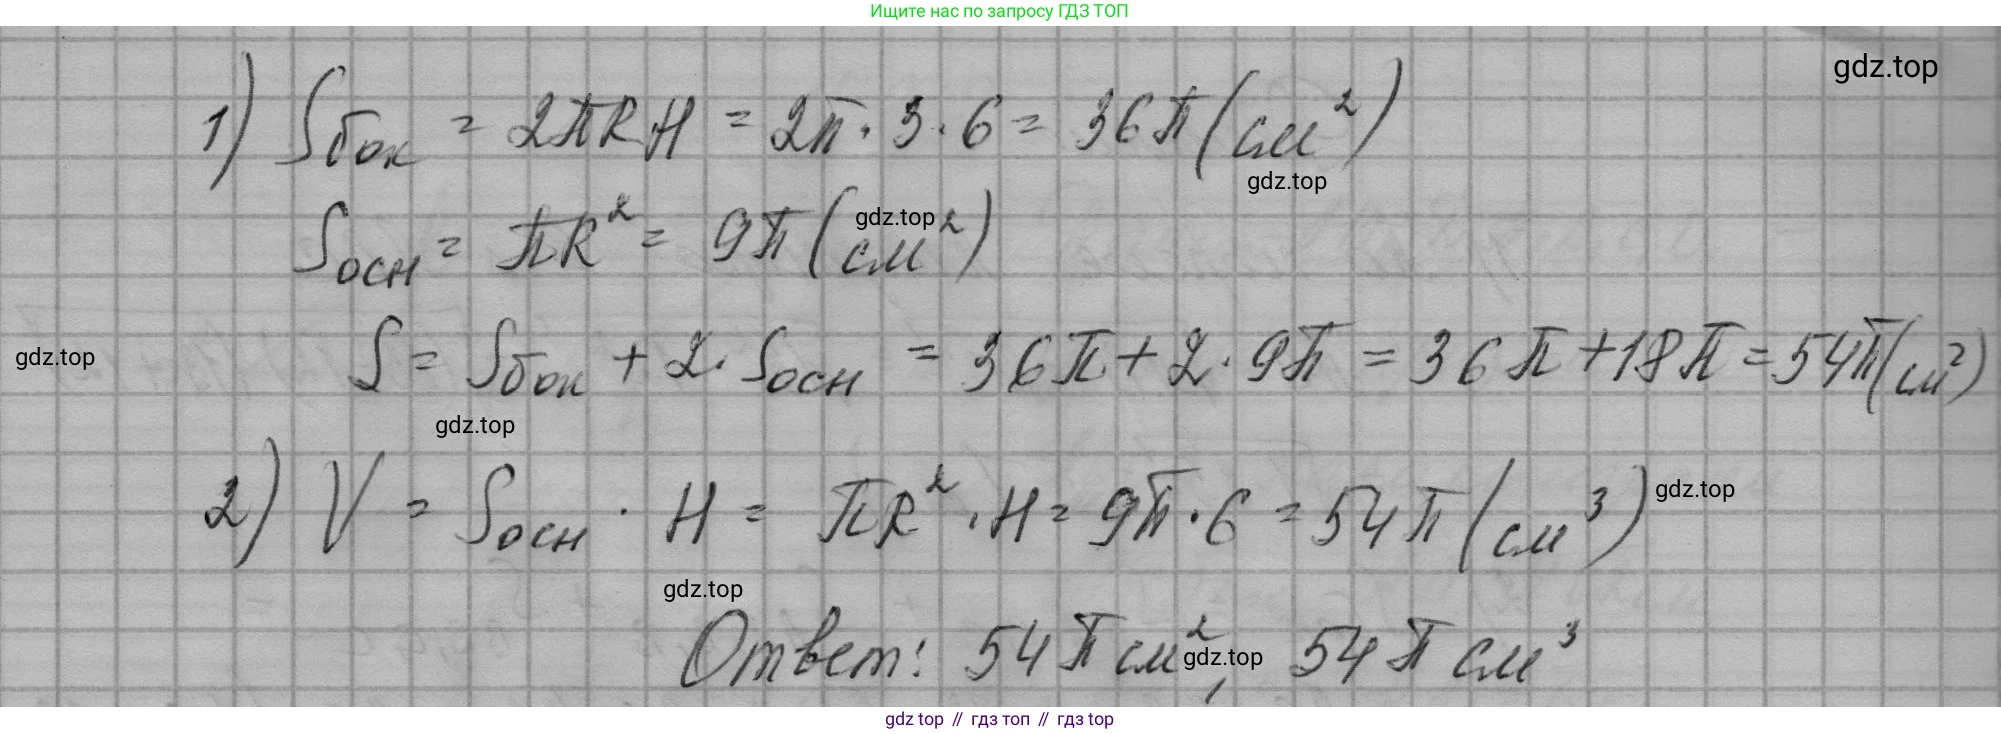 Ищите нас по запросу ГДЗ ТОП
gdz.top
1) Sбок = 2πRH = 2π · 3 · 6 = 36π (см²)
gdz.top
Sосн = πR² = 9π (см²)
gdz.top
S = Sбок + 2 · Sосн = 36π + 2 · 9π = 36π + 18π = 54π (см²)
gdz.top
gdz.top
2) V = Sосн · H = πR² · H = 9π · 6 = 54π (см³)
gdz.top
gdz.top
Ответ: 54π см², 54π см³
gdz.top
gdz top // гдз топ // гдз top